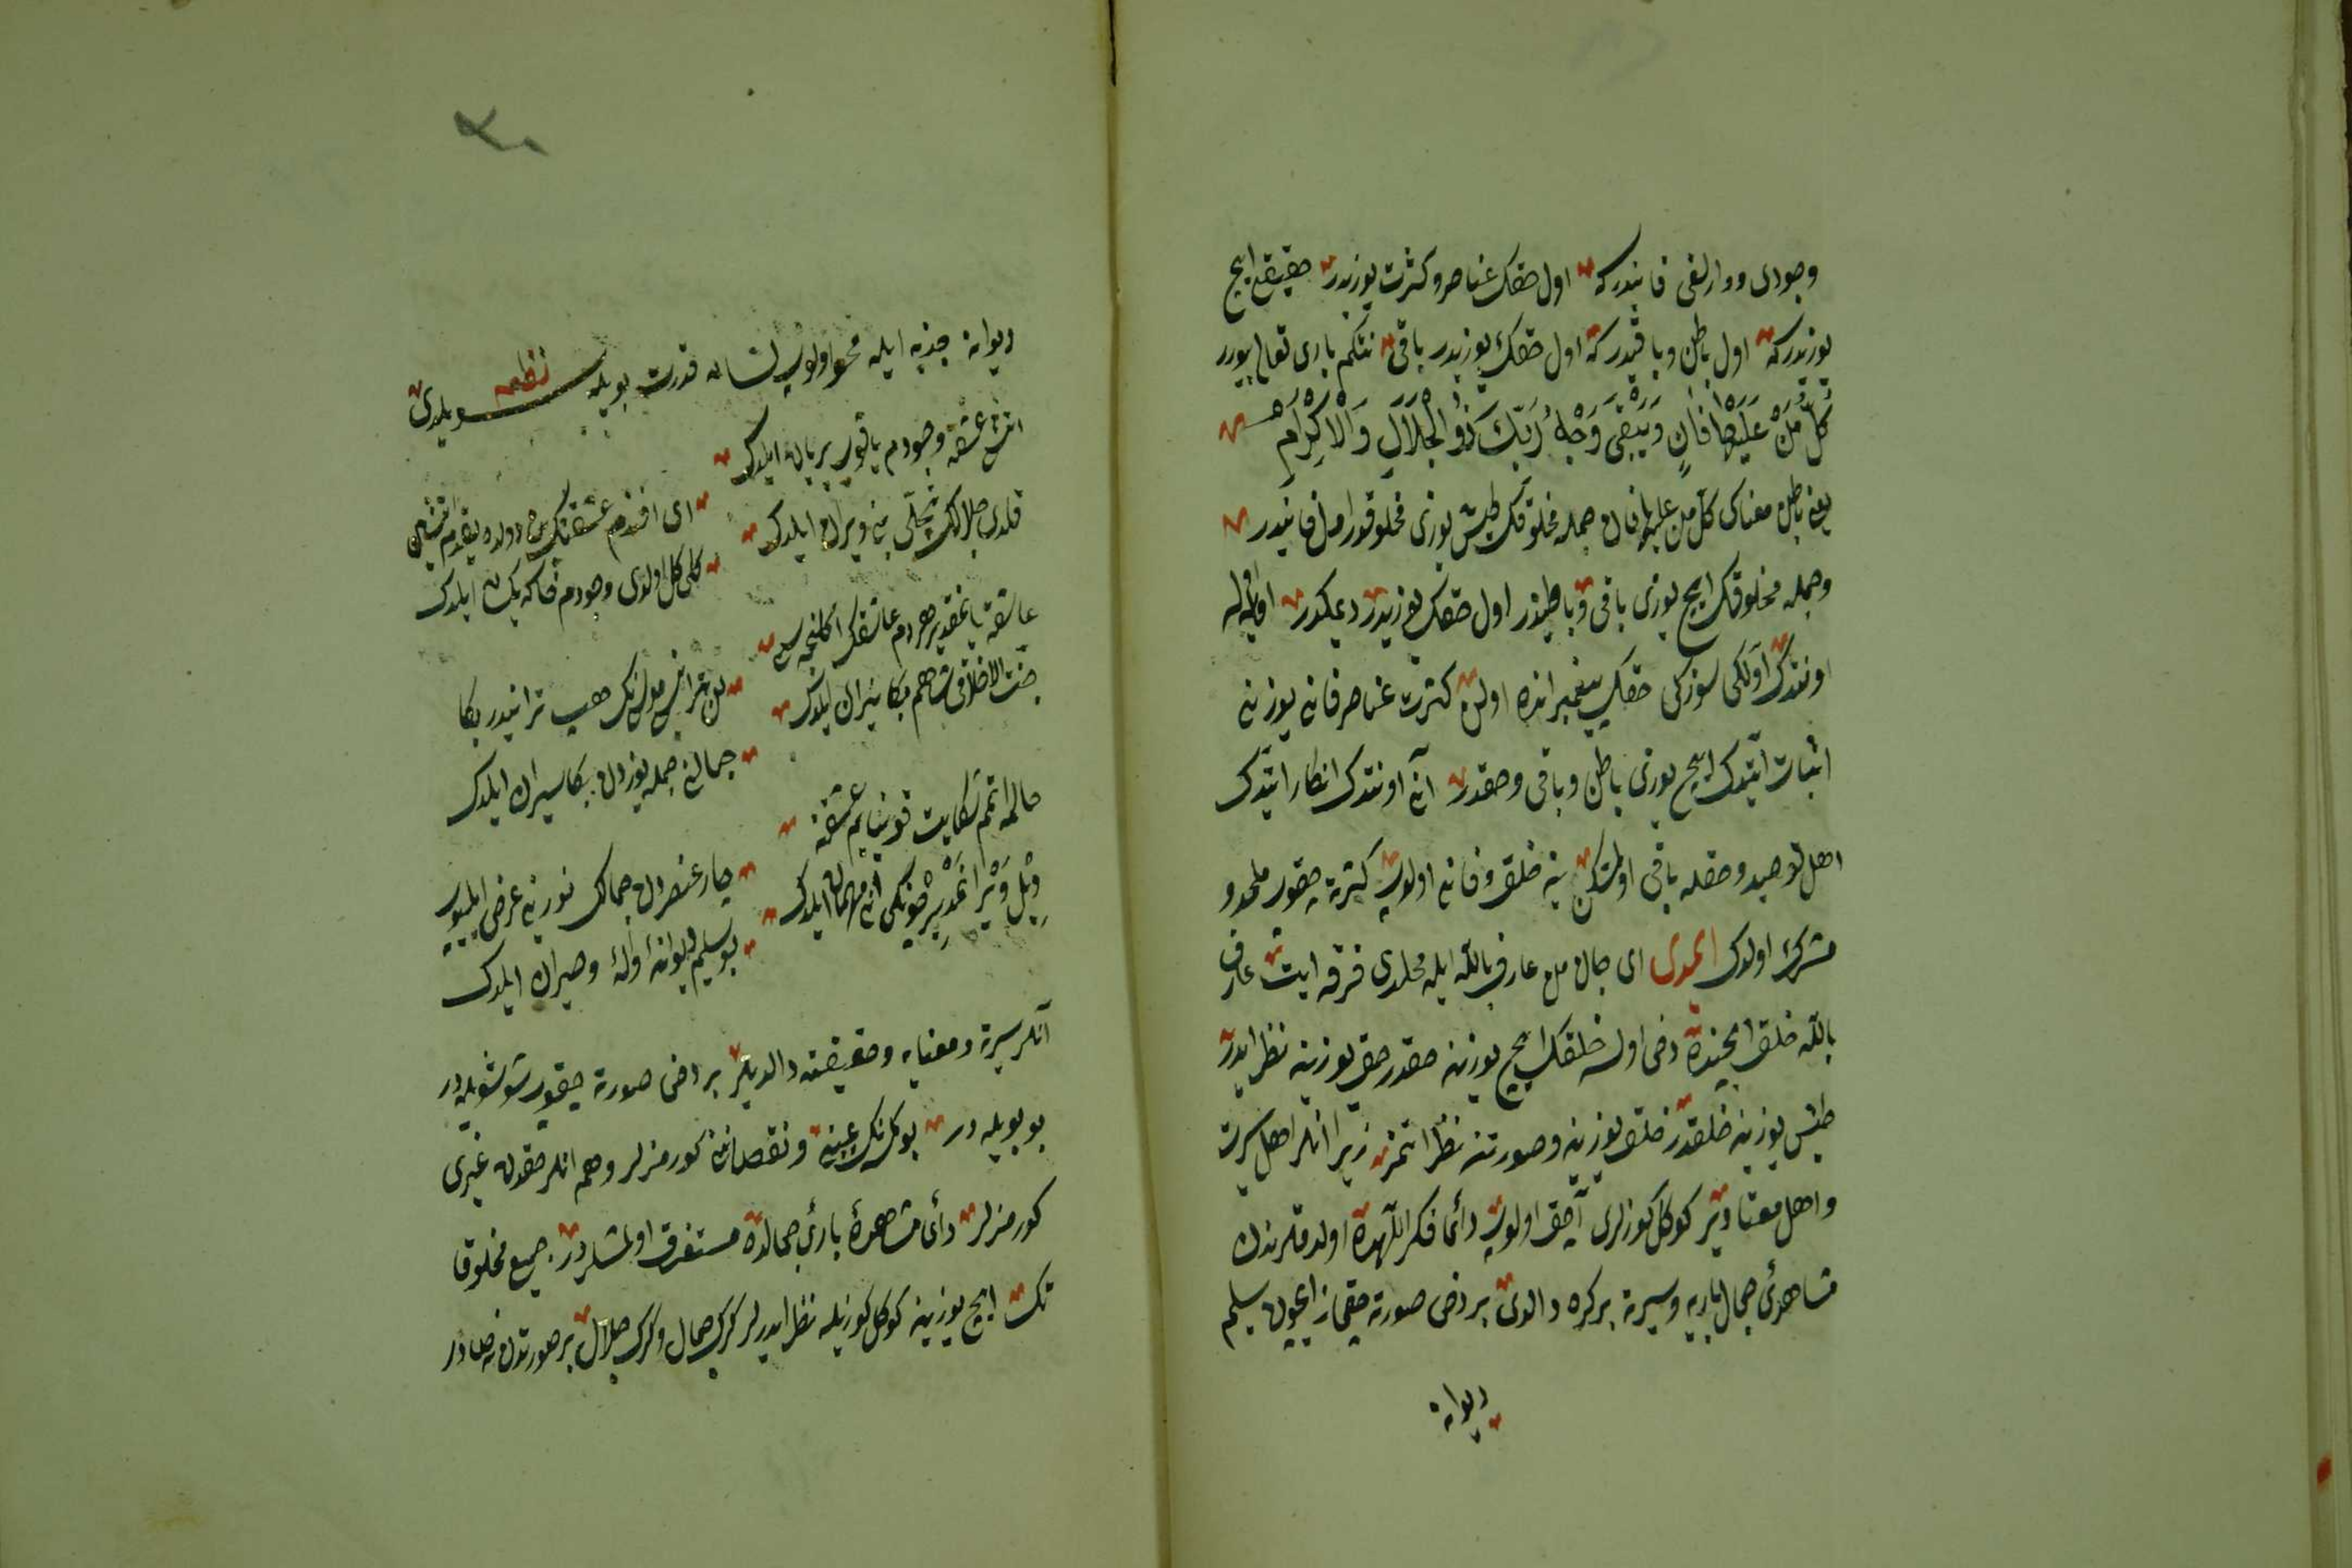 وجودی و وارلغی فانیدر که اول حقک عناصر و کثرت یوزیدر حقیقی ایچ
یوزیدر که اول باطن و باقیدر که اول حقک یوزیدر باقی نتکم باری تعالی بیورر
كُلُّ مَنْ عَلَيْهَا فَانٍ وَيَبْقَى وَجْهُ رَبِّكَ ذُو الْجَلَالِ وَالْاِكْرَامِ
یعنی باطن معناسی کل من علیها فان جمله مخلوقک طیش یوزی مخلوقدر اول فانیدر
وجمله مخلوقک ایچ یوزی باقی و باطندر اول حقک یوزیدر دیمکدر
اونتدک اولکی سوزکی حقک پیغمبرانده اولان کثرت عناصر فانی یوزنی
اثبات ایتدک ایچ یوزی باطن و باقی و حقدر آنی اونتدک انکار ایتدک
اهل توحید و حقله باقی اولمش ینه خلق و فانی اولوب کثرته چقوب ملحد و
مشرک اولدک ایمدی ای جان من عارف بالله ایله ملحدی فرقه ایت عارف
بالله خلق ایچنده دخی اولسه خلقک ایچ یوزینه حقدر حق یوزینه نظر ایدر
طیش یوزینه خلقدر خلق یوزینه و صورتنه نظر اتمز زیرا انلر اهل سیرت
و اهل معنادر کوکل کوزلری آچق اولوب دائما فکر اللهده اولدقلرندن
مشاهدئ جمال باریه و سیرته برکره دالدی بر دخی صورته چقماز انیچون سلیم
دیوانه
دیوانه جذبه ایله محو اولوب لسان قدرت بویله سویلدی نظم
آتش عشقه وجودم یاقوب بریان ایلدک
ای افندم عشقنک
قلدی جلالک تجلی بنی ویران ایلدک
کلی کل اولدی وجودم خاکه یکسان ایلدک
عاشقه یانمقدر هر دم عاشقک اکلنجه سی
جنت الاخلاقی شاهم بکا نیران ایلدک
جمالنی جمله یوزدن بکا سیران ایلدک
حالمه اتمم شکایت
چار عنصردن جمالک نورینی عرض ایلیوب
بو سلیم دیوانه اوله و حیران ایلدک
آنلر سیرته و معنایه و حقیقته دالدیلر بر دخی صورته چقوب شو شویله در
بو بویله در بو کسنک عیبنه و نقصاننی کورمزلر و هم انلر حقدن غیری
کورمزلر دائم مشاهدۀ باری جمالده مستغرق اولمشلردر جمیع مخلوقا
تک ایچ یوزینه کوکل کوزیله نظر ایدرلر کرک جمال و کرک جلال بر صورتدن نه صادر